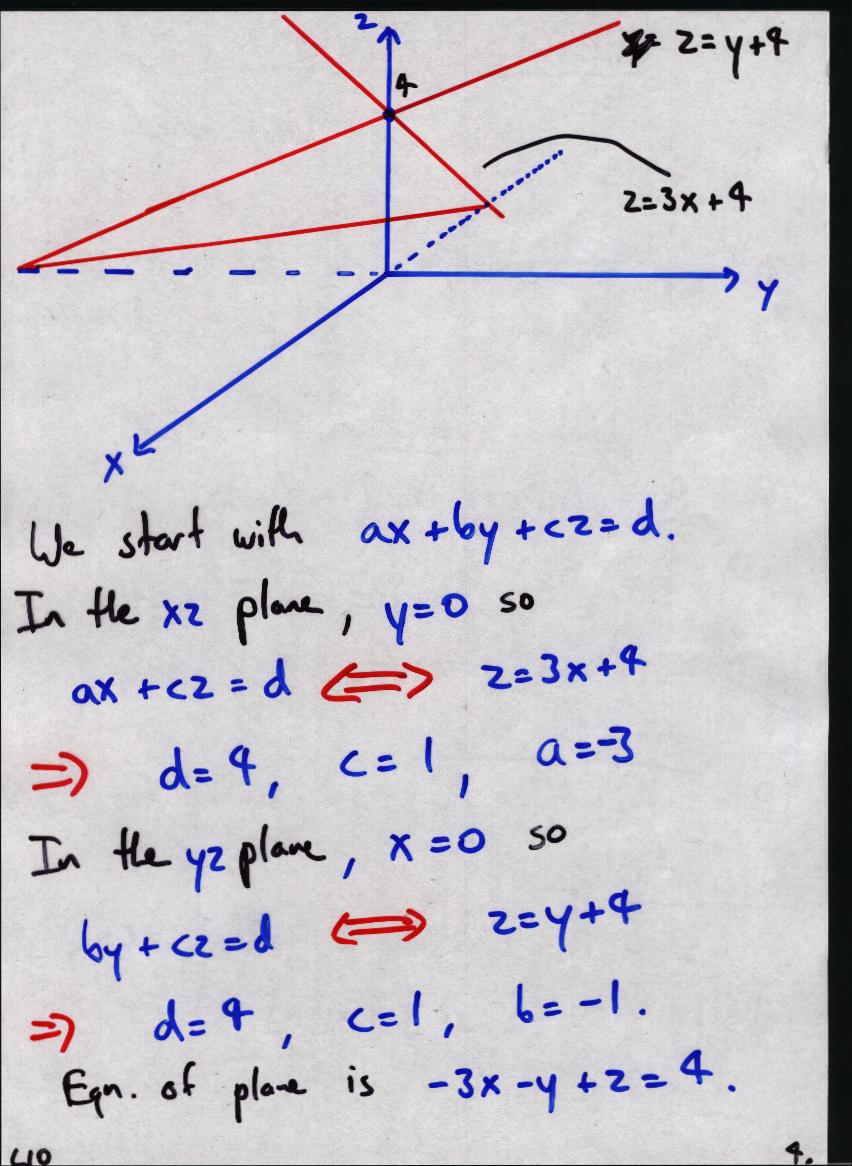 z
z = y+4
4
z=3x+4
y
x
We start with ax+by+cz=d.
In the xz plane, y=0 so
ax+cz=d ⟺ z=3x+4
⇒ d=4, c=1, a=-3
In the yz plane, x=0 so
by+cz=d ⟺ z=y+4
⇒ d=4, c=1, b=-1.
Eqn. of plane is -3x-y+z=4.
L10 4.